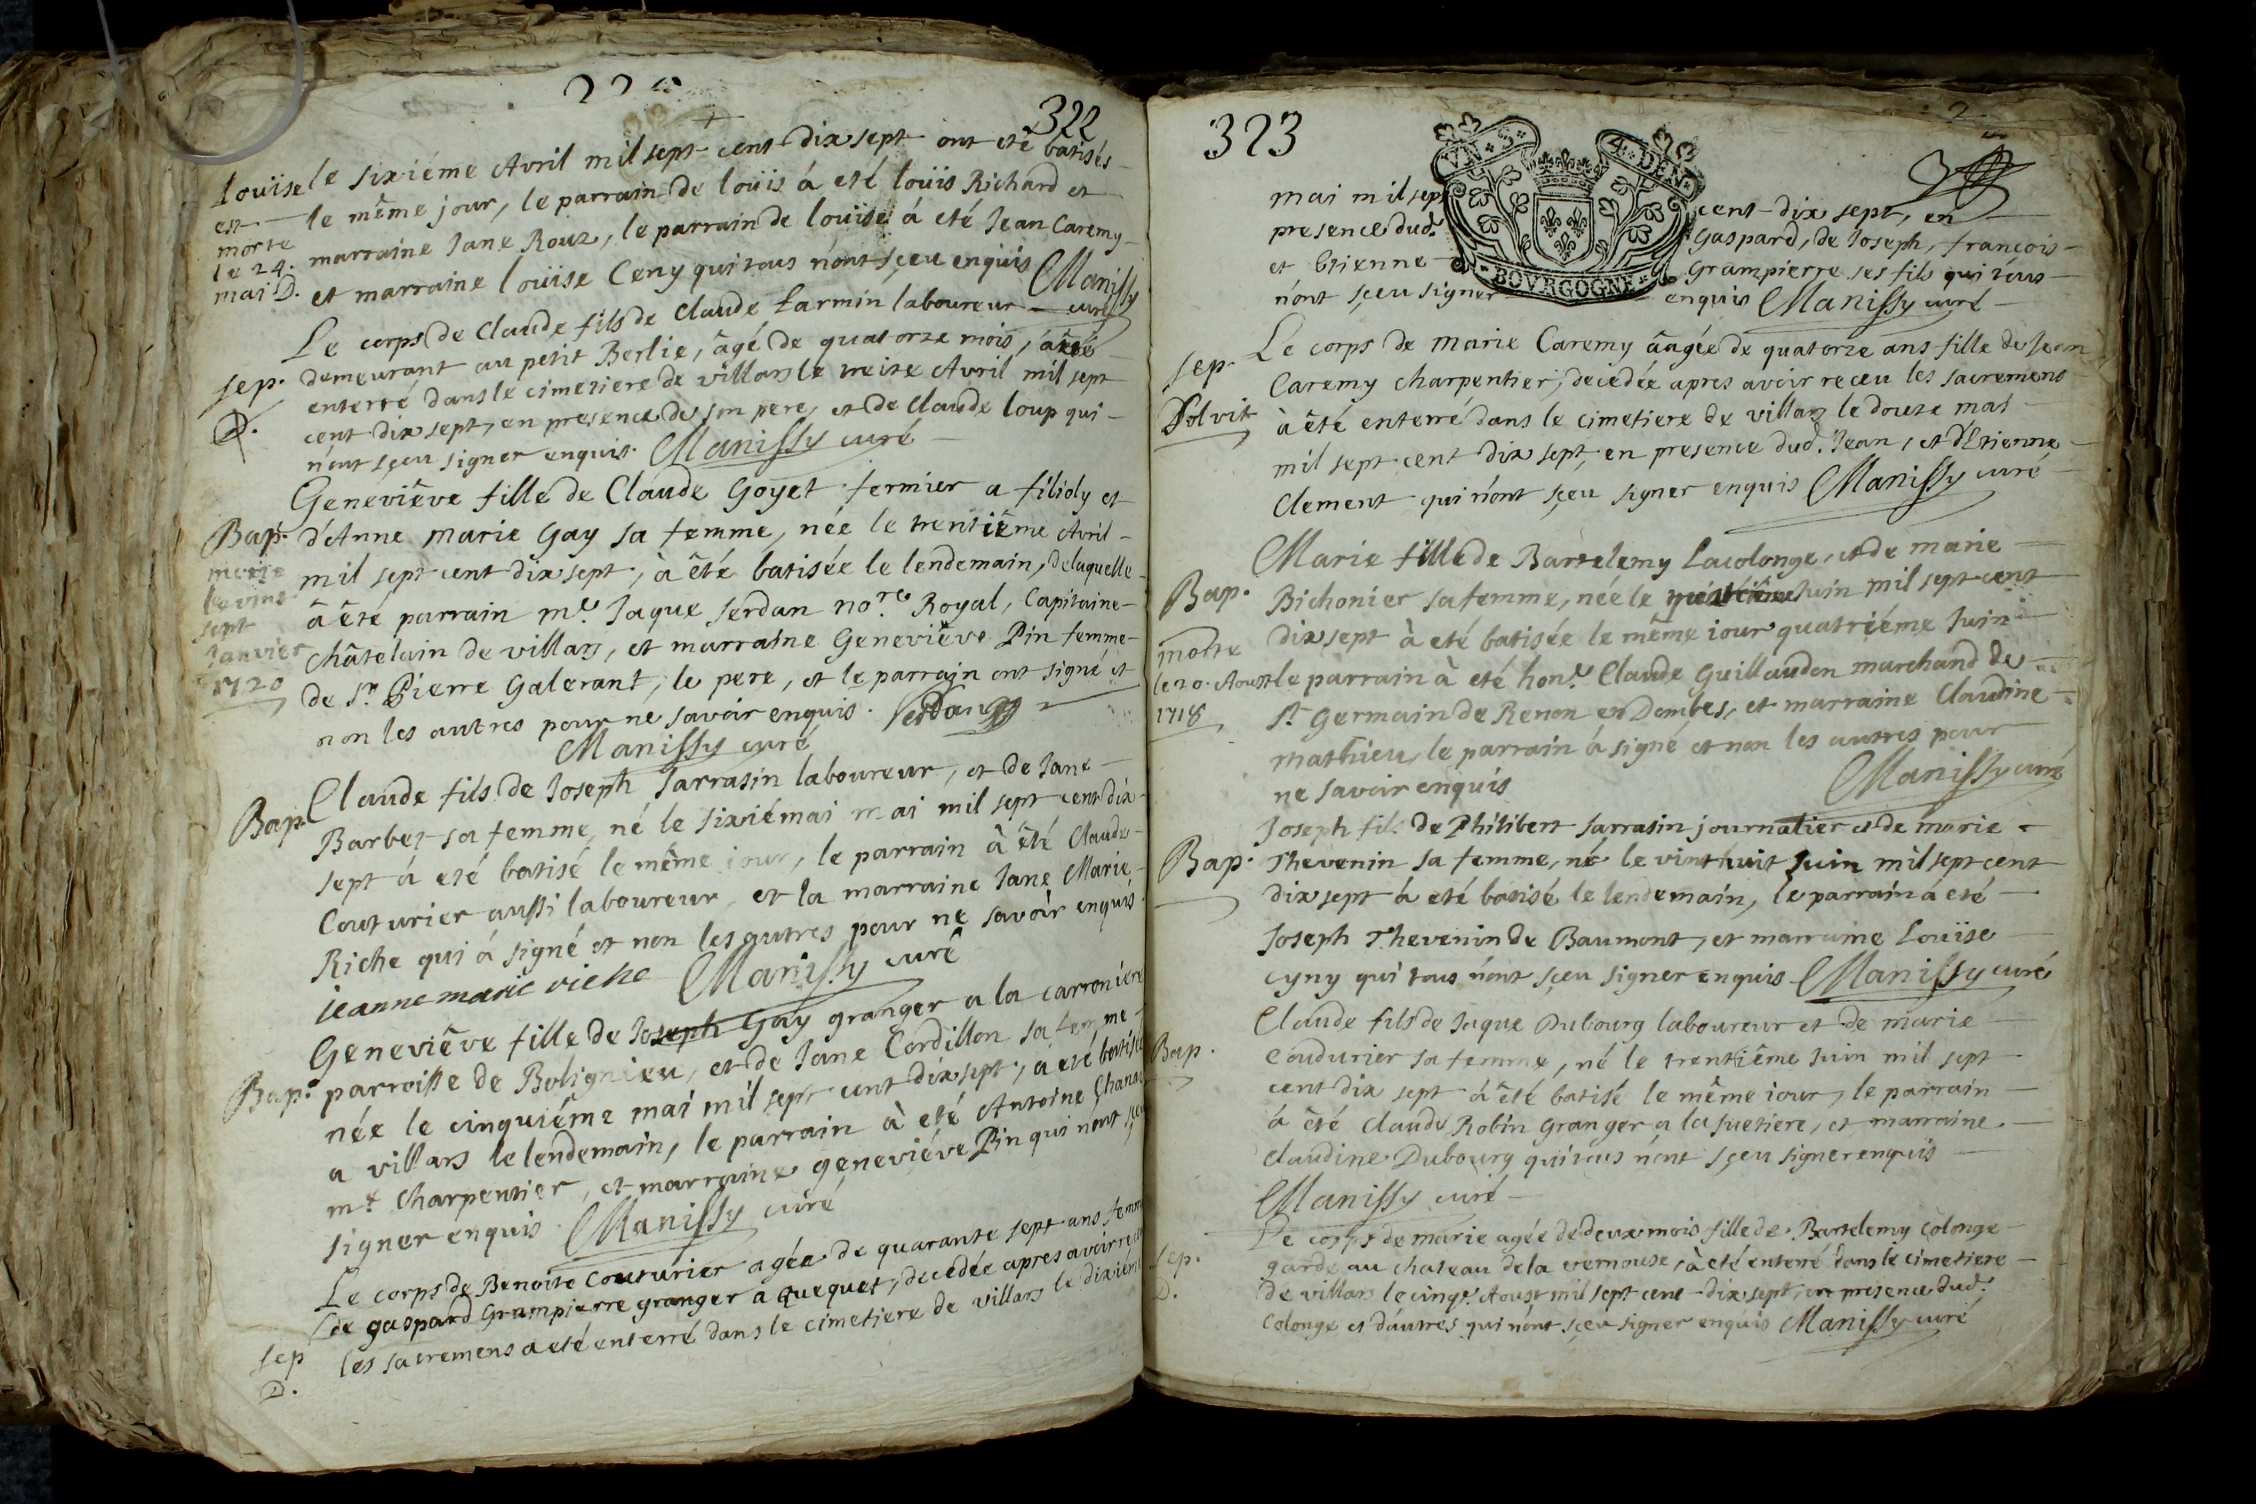 322
le sixiéme Avril mil sept cent dix sept ont eté batisés
Loüise
est
morte
le 24.
mai D.
le même jour, le parrain de loüis á eté loüis Richard et
marraine Jane Roux, le parrain de loüise á eté Jean Caremy
et marraine loüise Ceny qui tous n'ont sçeu enquis Manissy
curé
Le corps de Claude fils de Claude Larmin laboureur
sep.
D.
demeurant au petit Berlie, âgé de quatorze mois, á eté
enterré dans le cimetiere de villars le treize Avril mil sept
cent dix sept, en presence de son pere, et de Claude loup qui
n'ont sçeu signer enquis. Manissy curé
Geneviêve fille de Claude Goyet fermier a filioly et
Bap.
morte
le vint
sept
Janvier
1720
d'Anne marie Gay sa femme, née le trentiême Avril
mil sept cent dix sept, à êté batisée le lendemain, de laquelle
â êté parrain me. Jaque serdan nore. Royal, Capitaine
châtelain de villars, et marraine Geneviêve Pin femme
de Sr. Pierre Galerant, le pere, et le parrain ont signé et
non les autres pour ne savoir enquis. Serdan
Manissy curé
Claude fils de Joseph Sarrasin laboureur, et de Jane
Bap.
Barbet sa femme, né le sixiémai mai mil sept cent dix
sept á eté batisé le même jour, le parrain à êté Claude
Couturier aussi laboureur, et la marraine Jane Marie
Riche qui á signé et non les autres pour ne savoir enquis
jeanne marie riche Manissy curé
Geneviêve fille de Joseph Gay granger a la carroniere
Bap.
parroisse de Bolignieu, et de Jane Cordillon sa femme
née le cinquiéme mai mil sept cent dix sept, a eté batisée
a villars le lendemain, le parrain à eté Antoine Chana
mt. charpentier, et marraine geneviéve Pin qui n'ont sçeu
signer enquis. Manissy curé
Le corps de Benoite Couturier agée de quarante sept ans femme
de gaspard Grampierre granger a Quequet, decedée apres avoir receu
sep
D.
les sacremens a eté enterré dans le cimetiere de villars le dixiéme
323
VN·S·
4·DEN·
BOVRGOGNE
mai mil sept cent dix sept, en
presence dud. Gaspard, de Joseph, francois
et Etienne Grampierre ses fils qui tous
n'ont sçeu signer enquis Manissy curé
Le corps de marie Caremy âagée de quatorze ans fille de Jean
sep.
Solvit
Caremy charpentier, decedée apres avoir receu les sacremens
à êté enterré dans le cimetiere de villars le douze mai
mil sept cent dix sept, en presence dud. Jean, et d'Etienne
Clement qui n'ont sçeu signer enquis Manissy curé
Marie fille de Bartelemy Lacolonge, et de marie
Bap.
morte
le 20. Aoust
1718
Bichonier sa femme, née le Juin mil sept cent
dix sept à eté batisée le même iour quatriéme Juin
le parrain à eté hone. Claude Guillaudon marchand de
st. Germain de Renon en Dombes, et marraine Claudine
mathieu, le parrain á signé et non les autres pour
ne savoir enquis Manissy curé
Joseph fils de Philibert Sarrasin journalier et de marie
Bap.
Thevenin sa femme, né le vint huit Juin mil sept cent
dix sept á eté batisé le lendemain, le parrain á eté
Joseph Thevenin de Baumont, et marraine Loüise
Cyny qui tous n'ont sçeu signer enquis Manissy curé
Claude fils de Jaque Dubourg laboureur et de marie
Bap.
Coudurier sa femme, né le trentiême Juin mil sept
cent dix sept á êté batisé le même iour, le parrain
á êté Claude Robin Granger a la fuetiere, et marraine
Claudine Dubourg qui tous n'ont sçeu signer enquis
Manissy curé
Le corps de marie agée de deux mois fille de Bartelemy Colonge
sep.
D.
garde au chateau de la vernouse, à eté enterré dans le cimetiere
de villars le cinqe. Aoust mil sept cent dix sept, en presence dud.
Colonge et d'autres qui n'ont sçeu signer enquis Manissy curé